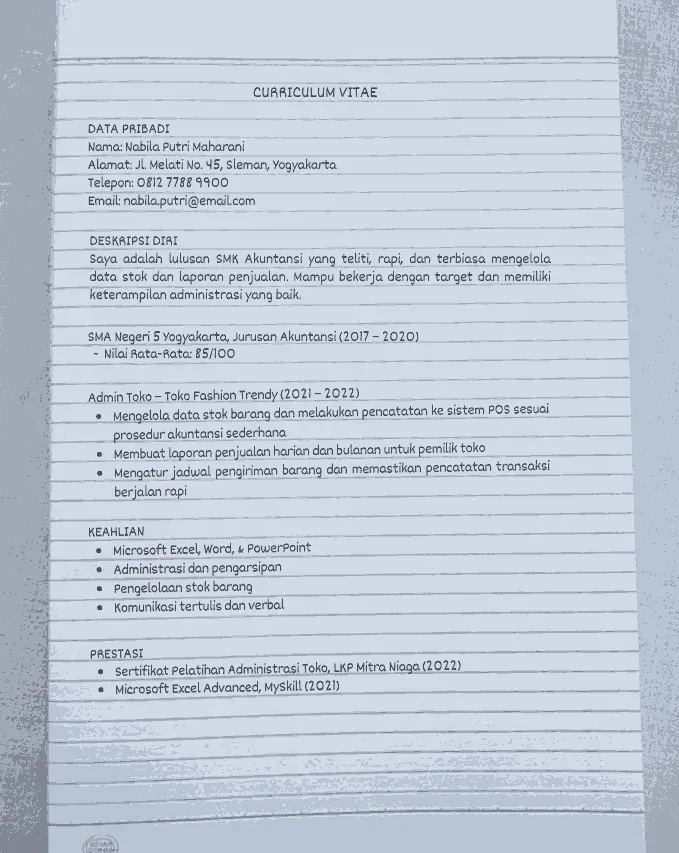 CURRICULUM VITAE
DATA PRIBADI
Nama: Nabila Putri Maharani
Alamat: Jl. Melati No. 45, Sleman, Yogyakarta
Telepon: 0812 7788 9900
Email: nabila.putri@email.com
DESKRIPSI DIRI
Saya adalah lulusan SMK Akuntansi yang teliti, rapi, dan terbiasa mengelola
data stok dan laporan penjualan. Mampu bekerja dengan target dan memiliki
keterampilan administrasi yang baik.
SMA Negeri 5 Yogyakarta, Jurusan Akuntansi (2017 – 2020)
- Nilai Rata-Rata: 85/100
Admin Toko – Toko Fashion Trendy (2021 – 2022)
• Mengelola data stok barang dan melakukan pencatatan ke sistem POS sesuai
prosedur akuntansi sederhana
• Membuat laporan penjualan harian dan bulanan untuk pemilik toko
• Mengatur jadwal pengiriman barang dan memastikan pencatatan transaksi
berjalan rapi
KEAHLIAN
• Microsoft Excel, Word, & PowerPoint
• Administrasi dan pengarsipan
• Pengelolaan stok barang
• Komunikasi tertulis dan verbal
PRESTASI
• Sertifikat Pelatihan Administrasi Toko, LKP Mitra Niaga (2022)
• Microsoft Excel Advanced, MySkill (2021)